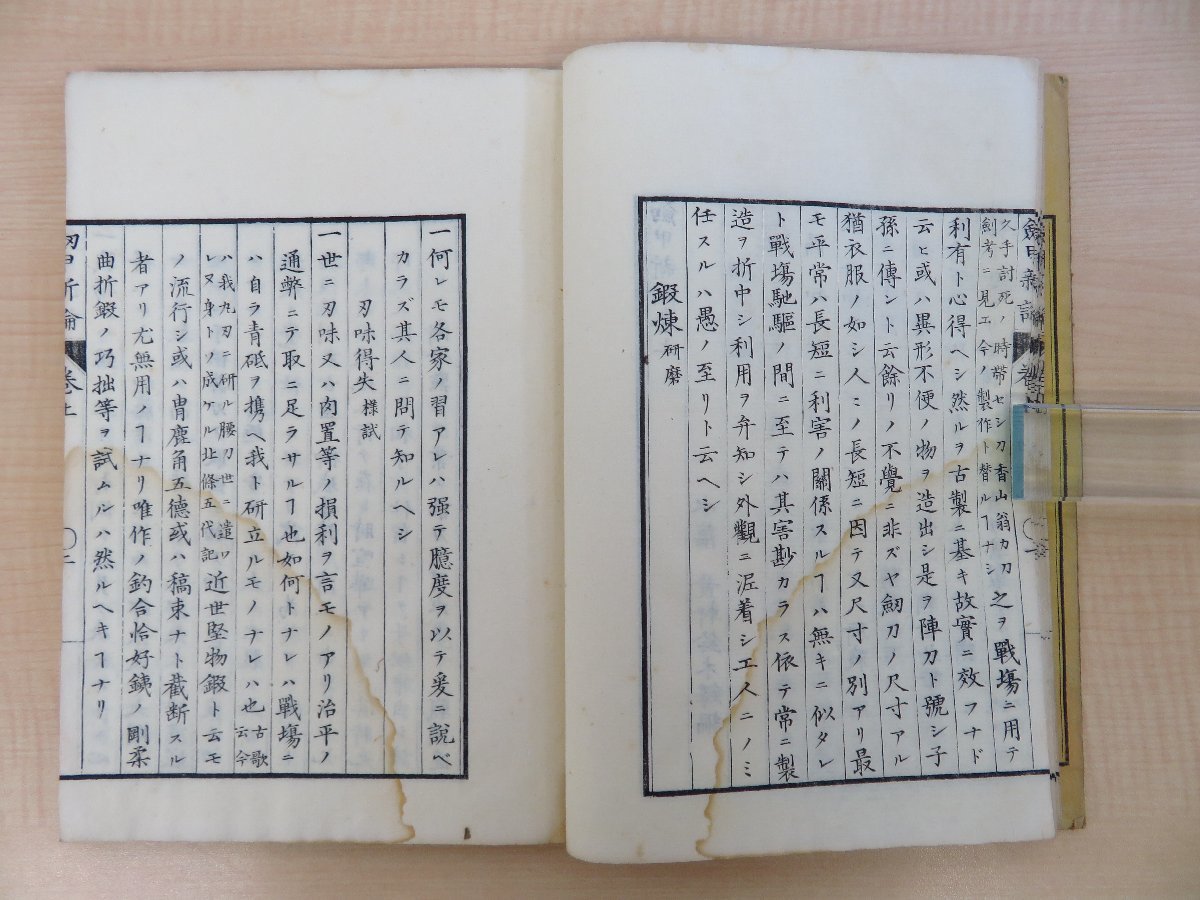 久手討死ノ時帶セシ刀香山翁カ刀
劍考ニ見エ今ノ製作ト替ルヿナシ
之ヲ戰塲ニ用テ
利有ト心得ヘシ然ルヲ古製ニ基キ故實ニ效フナド
云ヒ或ハ異形不便ノ物ヲ造出シ是ヲ陣刀ト號シ子
孫ニ傳ント云餘リノ不覺ニ非ズヤ劒刀ノ尺寸アル
猶衣服ノ如シ人〻ノ長短ニ因テ又尺寸ノ別アリ最
モ平常ハ長短ニ利害ノ關係スルヿハ無キニ似タレ
ト戰塲馳驅ノ間ニ至テハ其害尠カラス依テ常ニ製
造ヲ折中シ利用ヲ弁知シ外觀ニ泥着シ工人ニノミ
任スルハ愚ノ至リト云ヘシ
鍜煉 研磨
一何レモ各家ノ習アレハ强テ臆度ヲ以テ爰ニ說ベ
カラズ其人ニ問テ知ルヘシ
刃味得失 様試
一世ニ刃味又ハ肉置等ノ損利ヲ言モノアリ治平ノ
通弊ニテ取ニ足ラサルヿ也如何トナレハ戰塲ニ
ハ自ラ青砥ヲ携ヘ我ト研立ルモノナレハ也
古歌云今
ハ我九刃テ研ル腰刀世ニ遣ワ
レヌ身トノ成ケル北條五代記
近世堅物鍜ト云モ
ノ流行シ或ハ冑鹿角五德或ハ稿束ナト截断スル
者アリ尤無用ノヿナリ唯作ノ釣合恰好銕ノ剛柔
曲折鍜ノ巧拙等ヲ試ムルハ然ルヘキヿナリ
折論 卷上